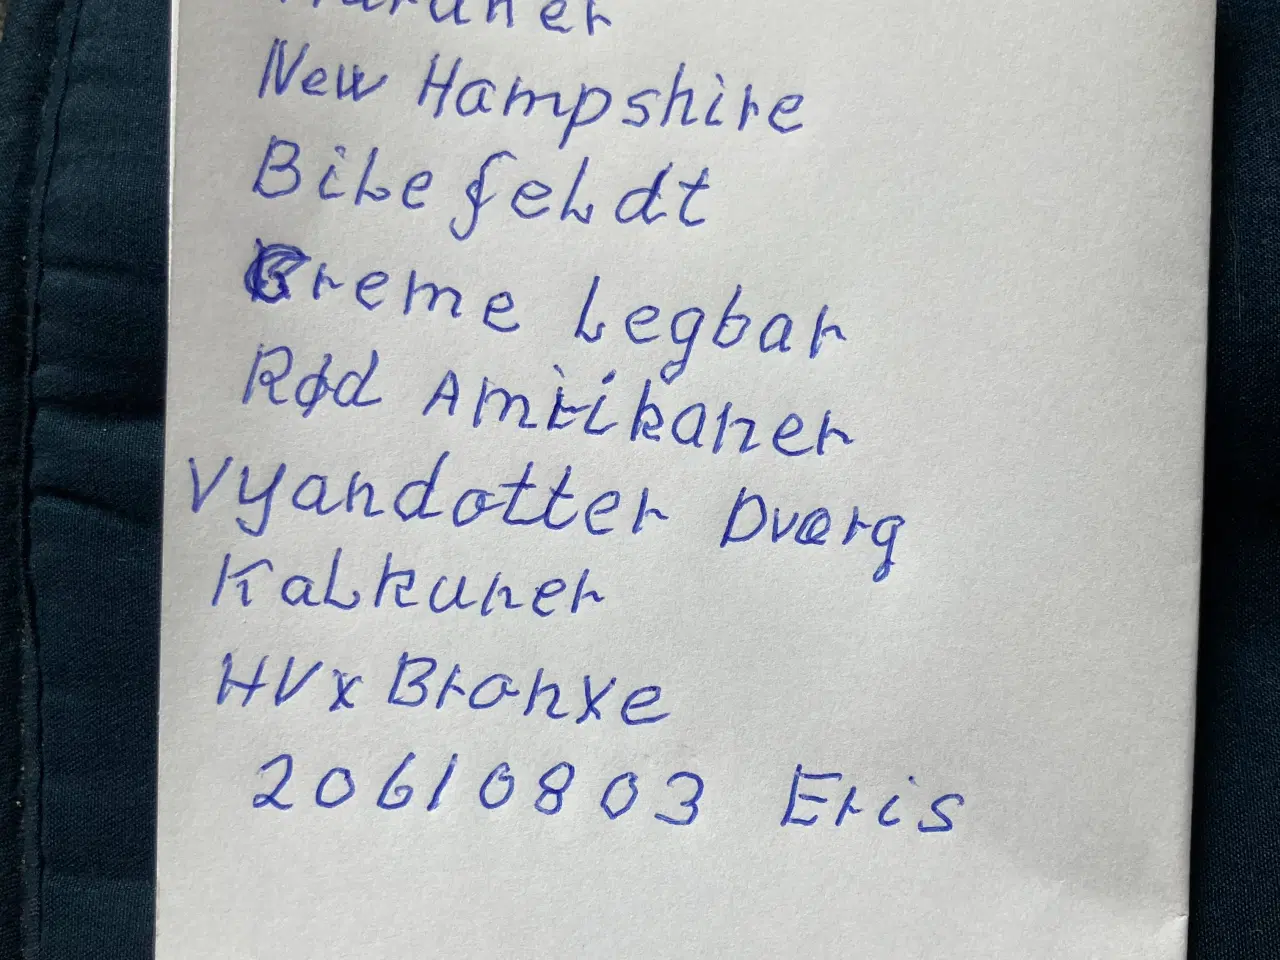 New Hampshire
Bilefeldt
Creme Legbar
Rød Amrikaner
Vyandotter Dværg
Kalkuner
HVx Bronxe
20610803 Eris